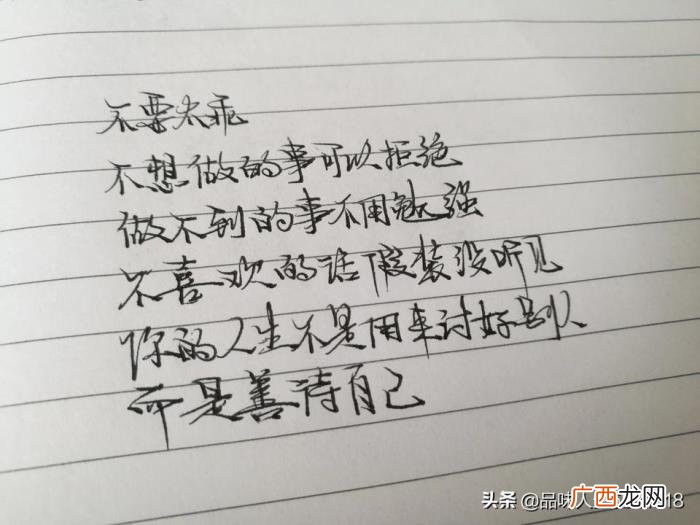 不要太乖
不想做的事可以拒绝
做不到的事不用勉强
不喜欢的话假装没听见
你的人生不是用来讨好别人
而是善待自己
头条 @品味人 18
广西龙网